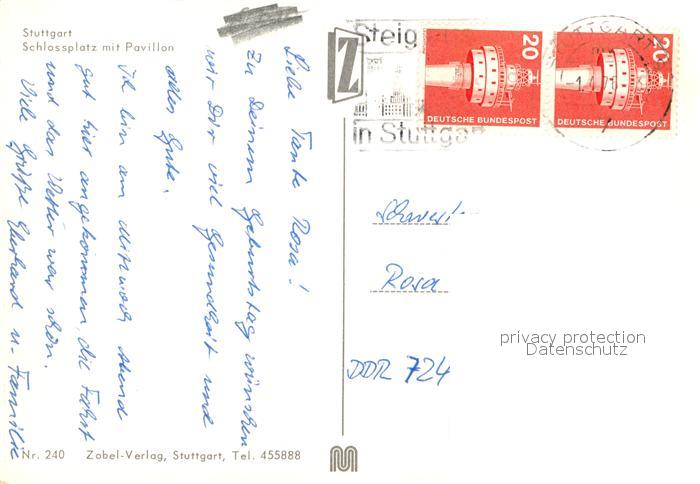 Stuttgart
Schlossplatz mit Pavillon
Liebe Tante Rosa!
Zu Deinem Geburtstag wünschen
wir Dir viel Gesundheit und
alles Gute.
Ich bin am Mittwoch abend
gut hier angekommen, die Fahrt
und das Wetter war schön.
Viele Grüße Eberhard u. Familie
Nr. 240 Zobel-Verlag, Stuttgart, Tel. 455888
Steig
Z
in Stuttgart
20
DEUTSCHE BUNDESPOST
20
DEUTSCHE BUNDESPOST
STUTTGART
Rosa
privacy protection
Datenschutz
DDR 724